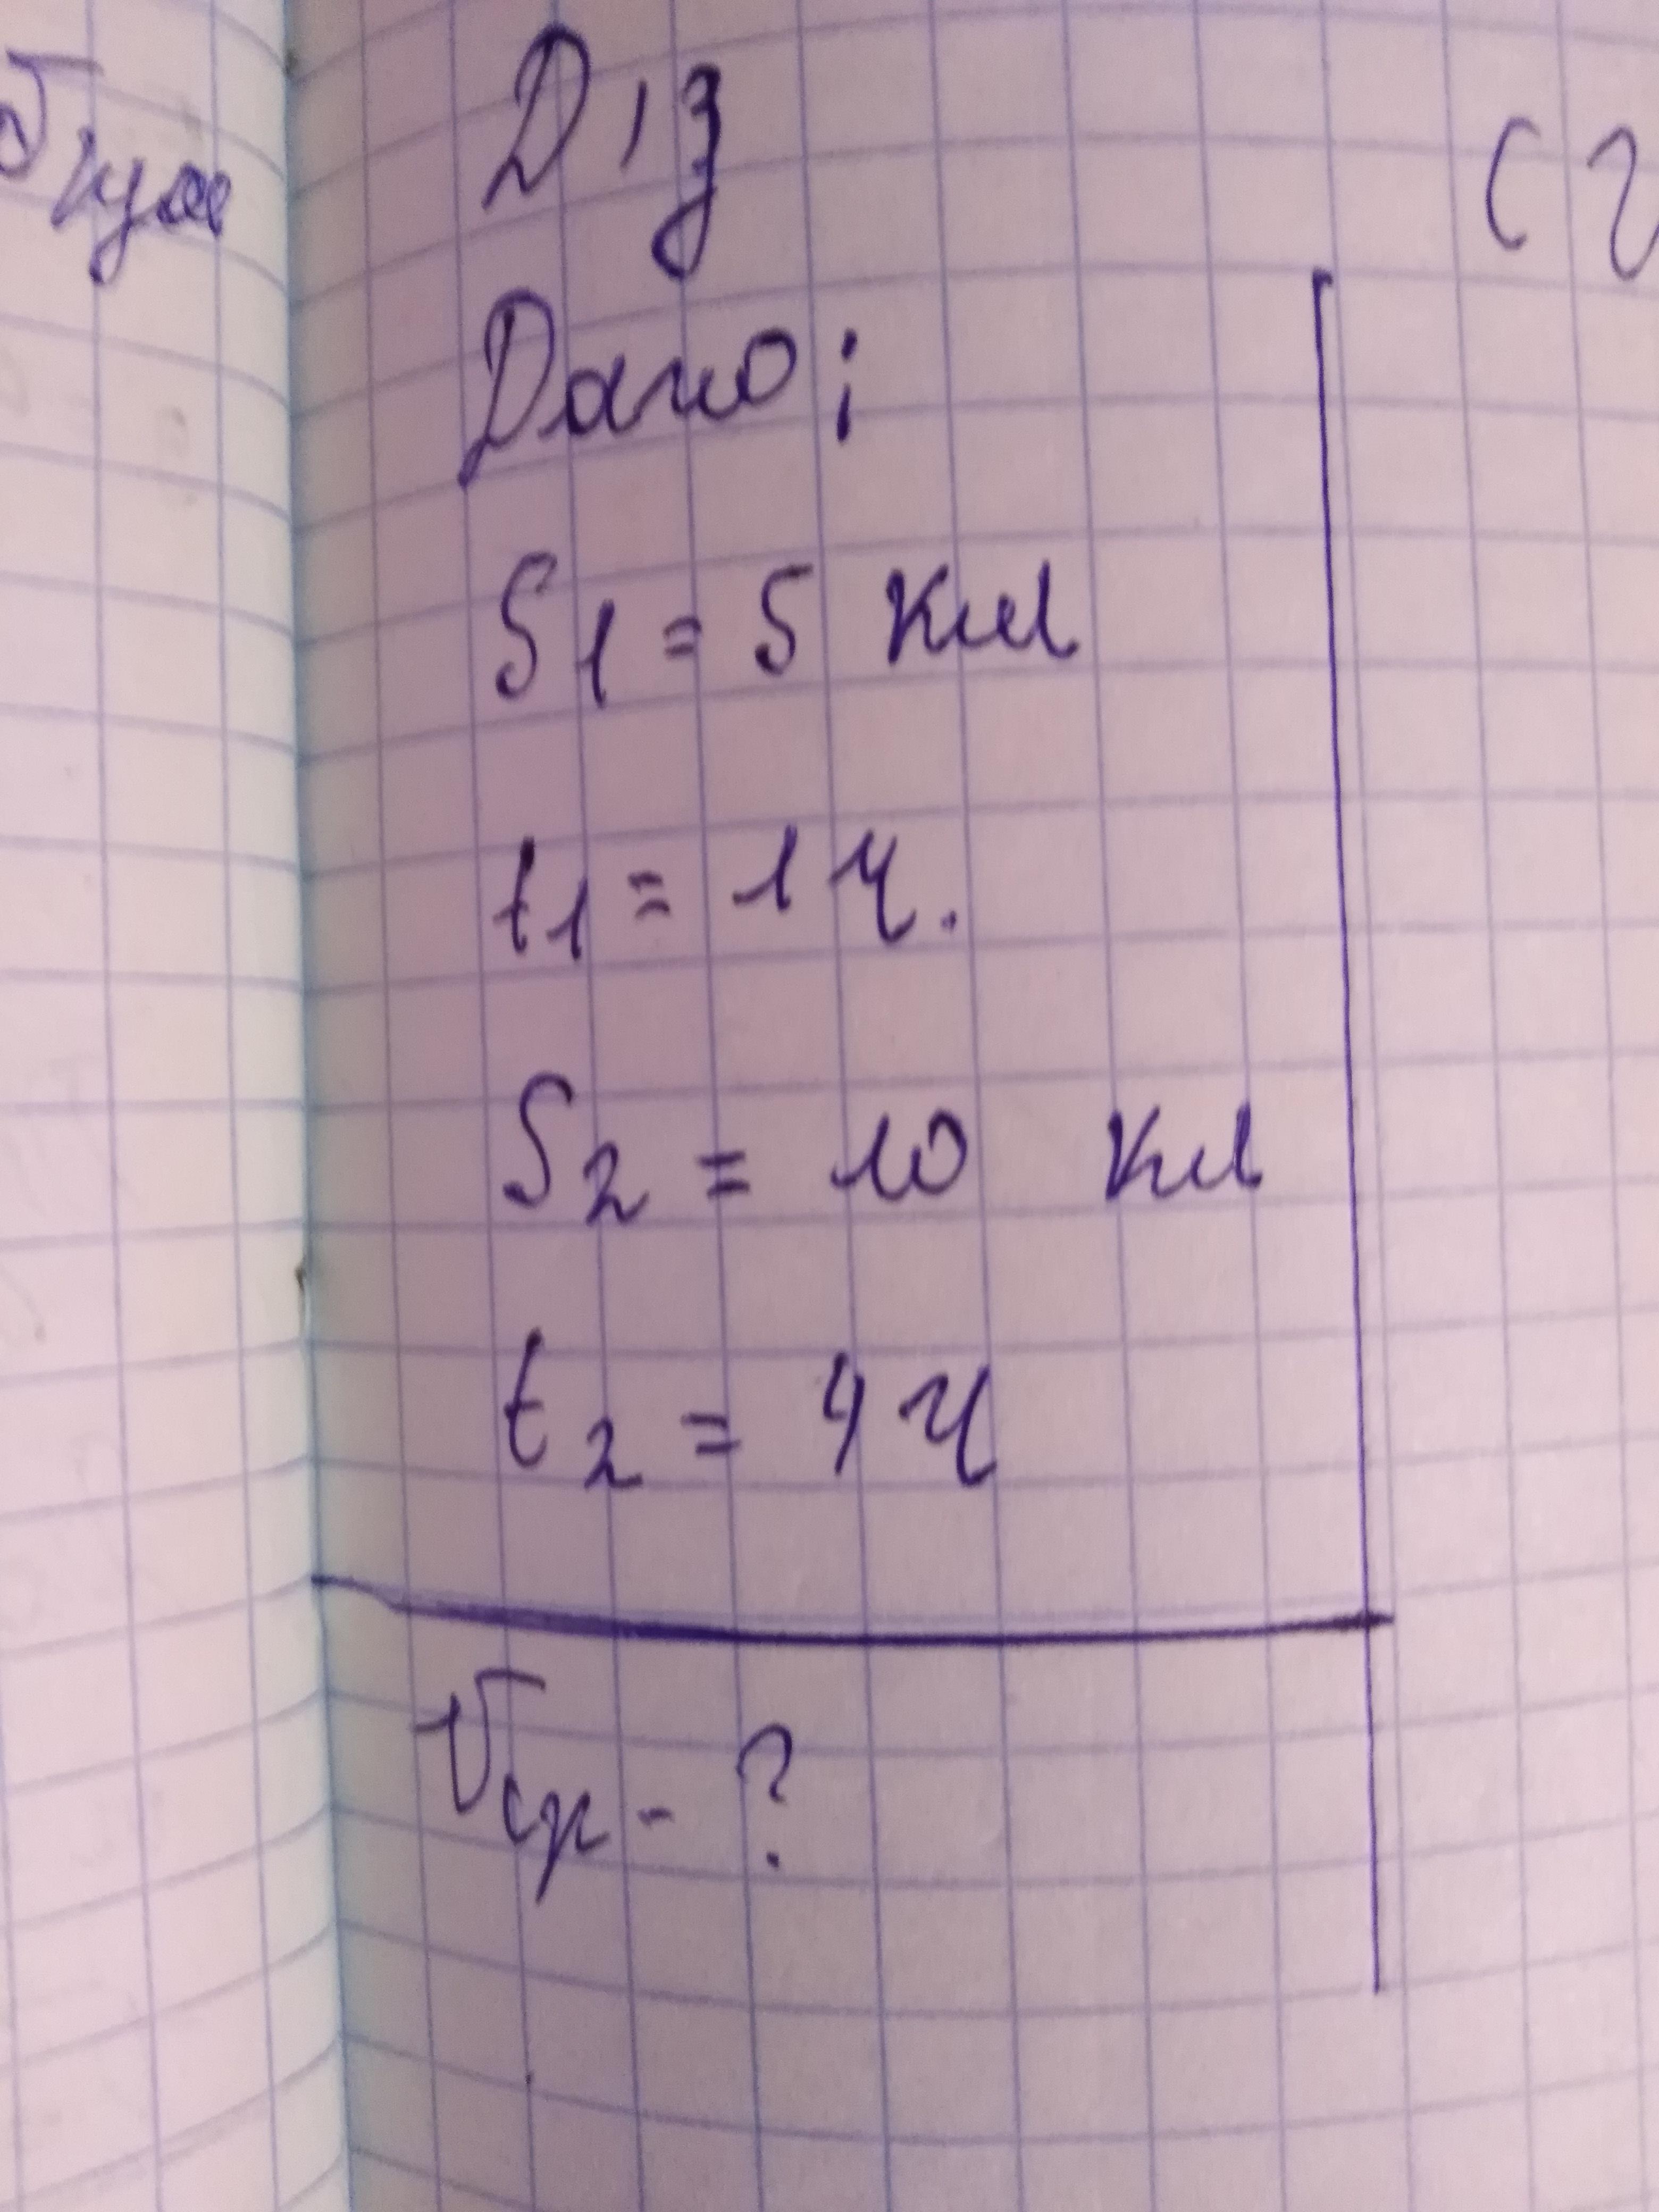 Д/з
Дано:
S1 = 5 км
t1 = 1 ч.
S2 = 10 км
t2 = 4 ч
Vср - ?